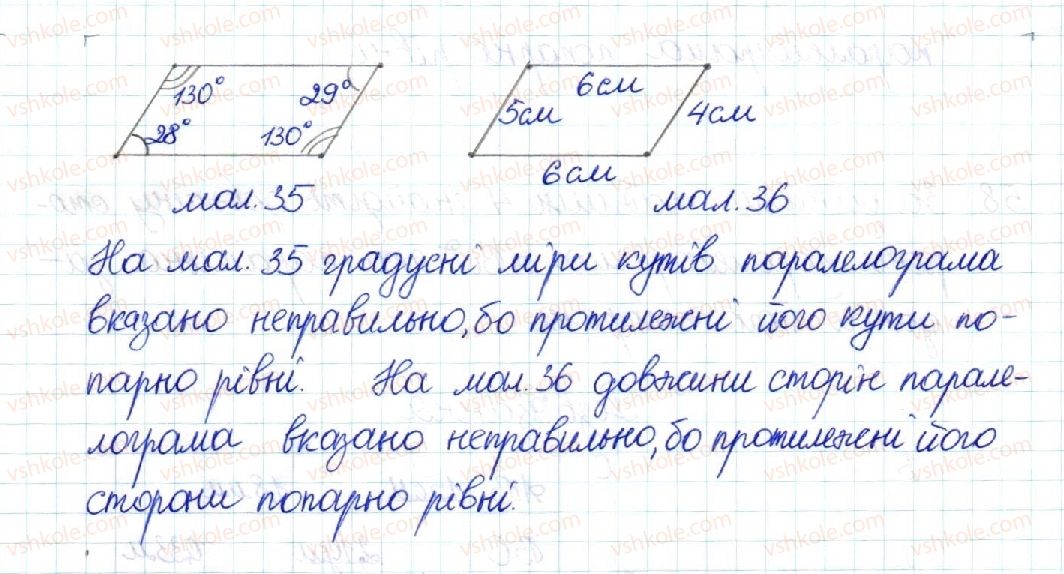 130° 29°
28° 130°
6см
5см 4см
6см
мал. 35 мал. 36
На мал. 35 градусні міри кутів паралелограма
вказано неправильно, бо протилежні його кути по-
парно рівні. На мал. 36 довжини сторін парале-
лограма вказано неправильно, бо протилежні його
сторони попарно рівні.
vshkole.com